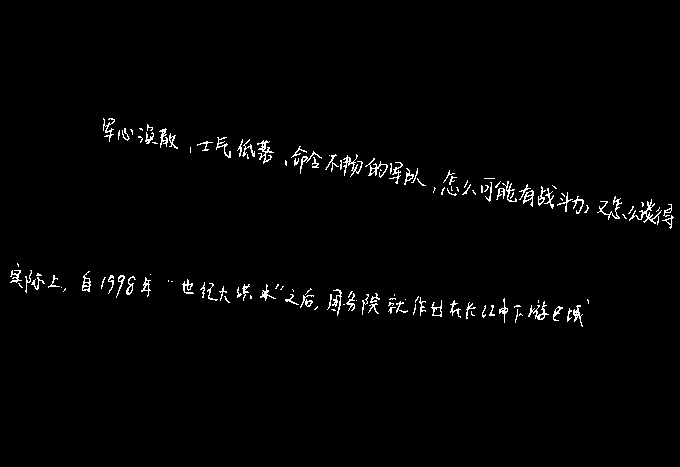 军心涣散、士气低落、命令不畅的军队,怎么可能有战斗力,又怎么谈得
实际上,自1998年“世纪大洪水”之后,国务院就作出在长江中下游区域